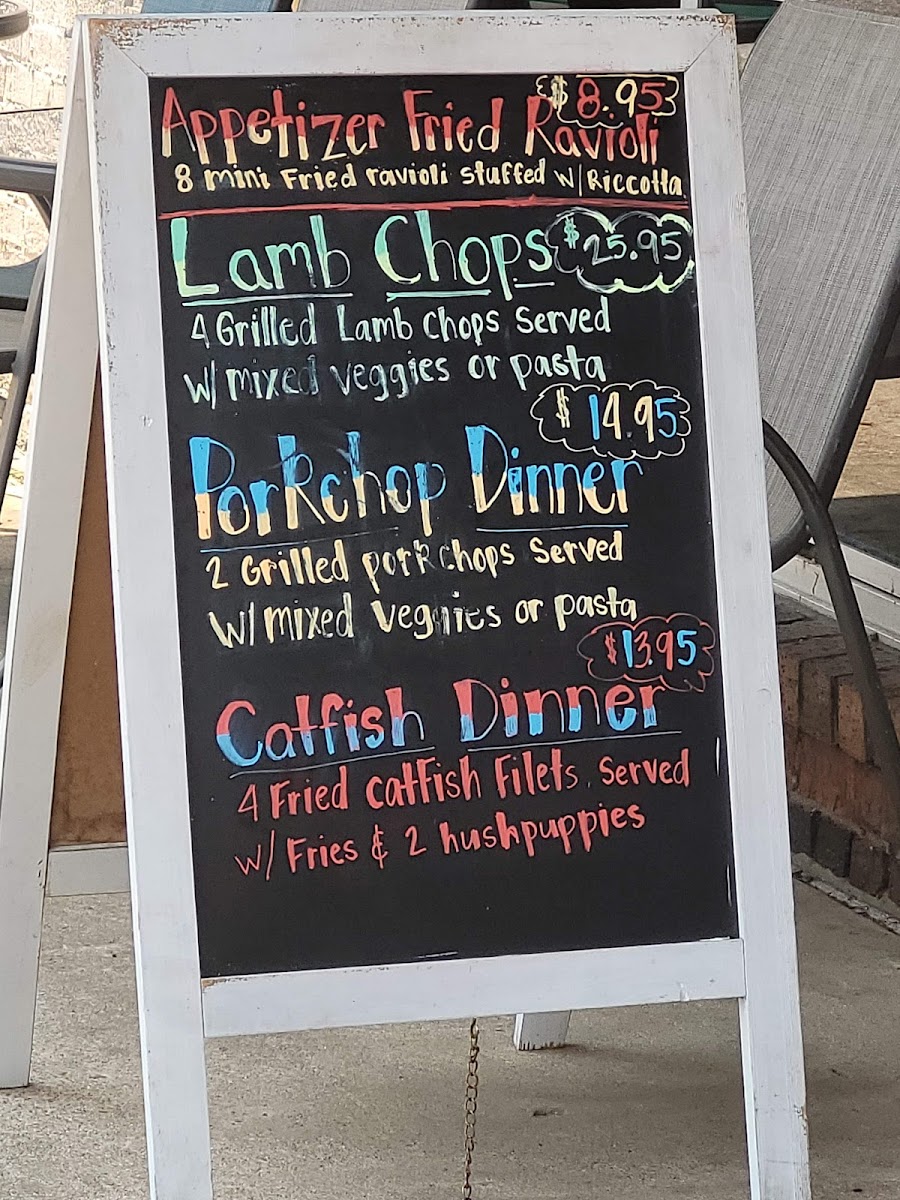 $8.95
Appetizer Fried Ravioli
8 mini Fried ravioli stuffed w/ Riccotta
Lamb Chops $25.95
4 Grilled Lamb Chops Served
w/ mixed veggies or pasta
$14.95
Porkchop Dinner
2 Grilled porkchops Served
w/ mixed Veggies or pasta
$13.95
Catfish Dinner
4 Fried catfish Filets. Served
w/ Fries & 2 hushpuppies